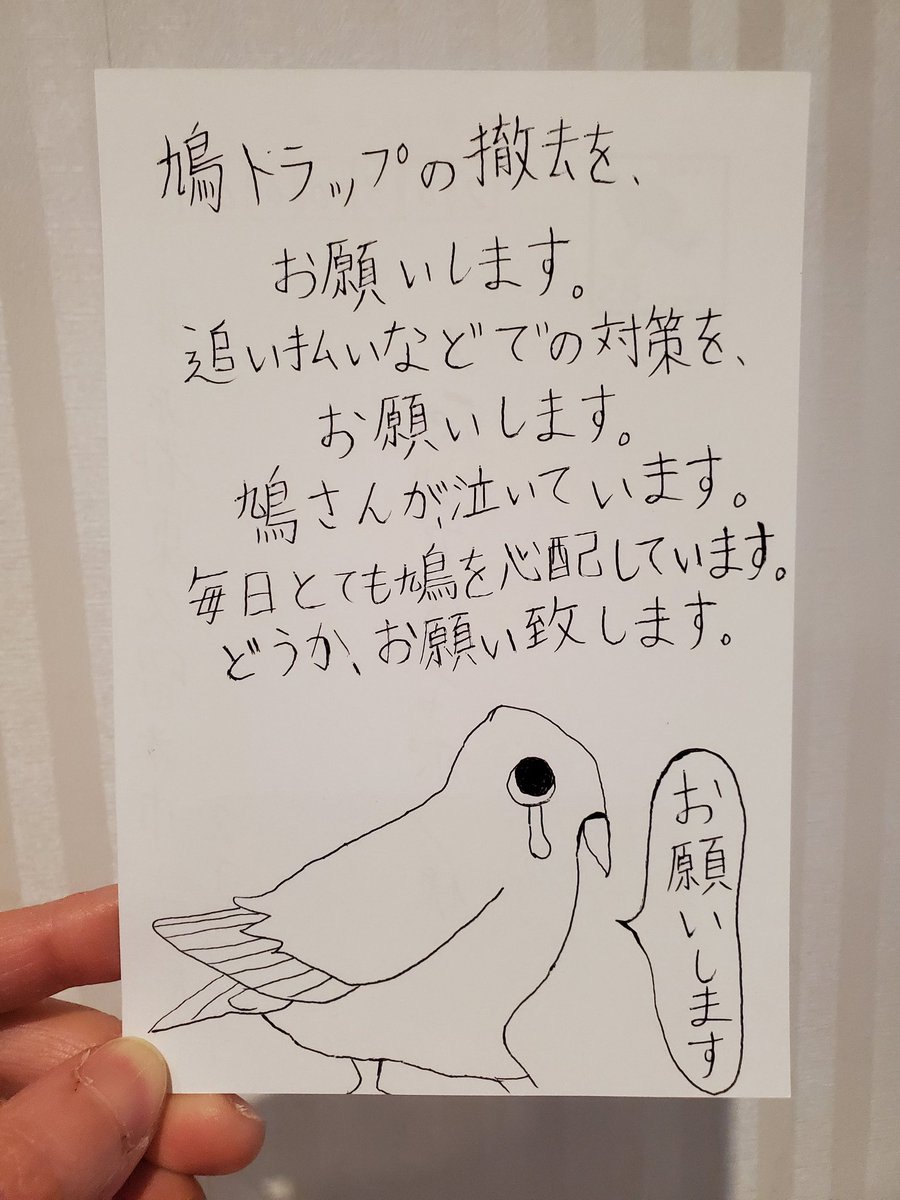 鳩トラップの撤去を、
お願いします。
追い払いなどでの対策を、
お願いします。
鳩さんが、泣いています。
毎日とても鳩を心配しています。
どうか、お願い致します。
お願いします